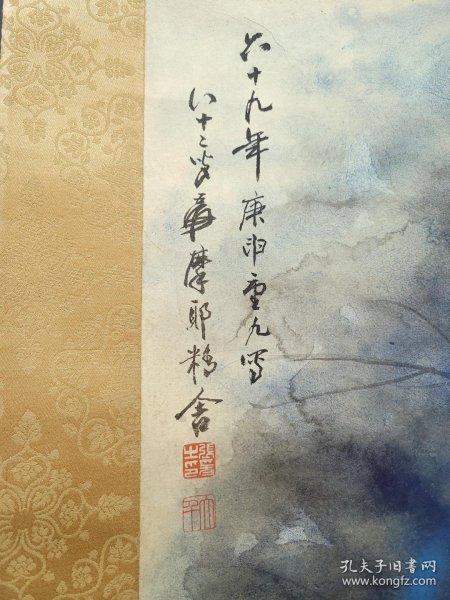 六十九年庚申重九写
八十二叟爰摩耶精舍
張爰之印
大千
孔夫子旧书网
www.kongfz.com